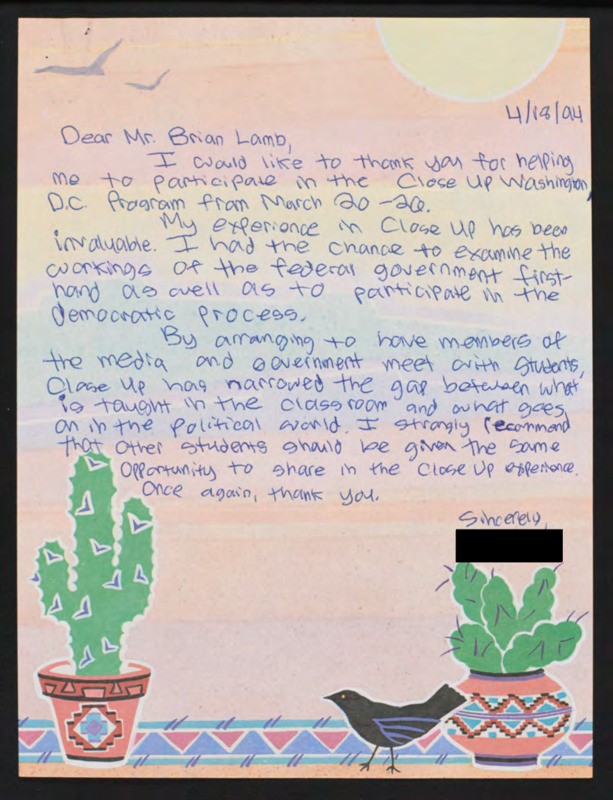 4/18/94
Dear Mr. Brian Lamb,
I would like to thank you for helping
me to participate in the Close Up Washington,
D.C. Program from March 20-26.
My experience in Close Up has been
invaluable. I had the chance to examine the
workings of the federal government first-
hand as well as to participate in the
democratic process.
By arranging to have members of
the media and government meet with students,
Close Up has narrowed the gap between what
is taught in the classroom and what goes
on in the political world. I strongly recommend
that other students should be given the same
Opportunity to share in the Close Up experience.
Once again, thank you.
Sincerely,